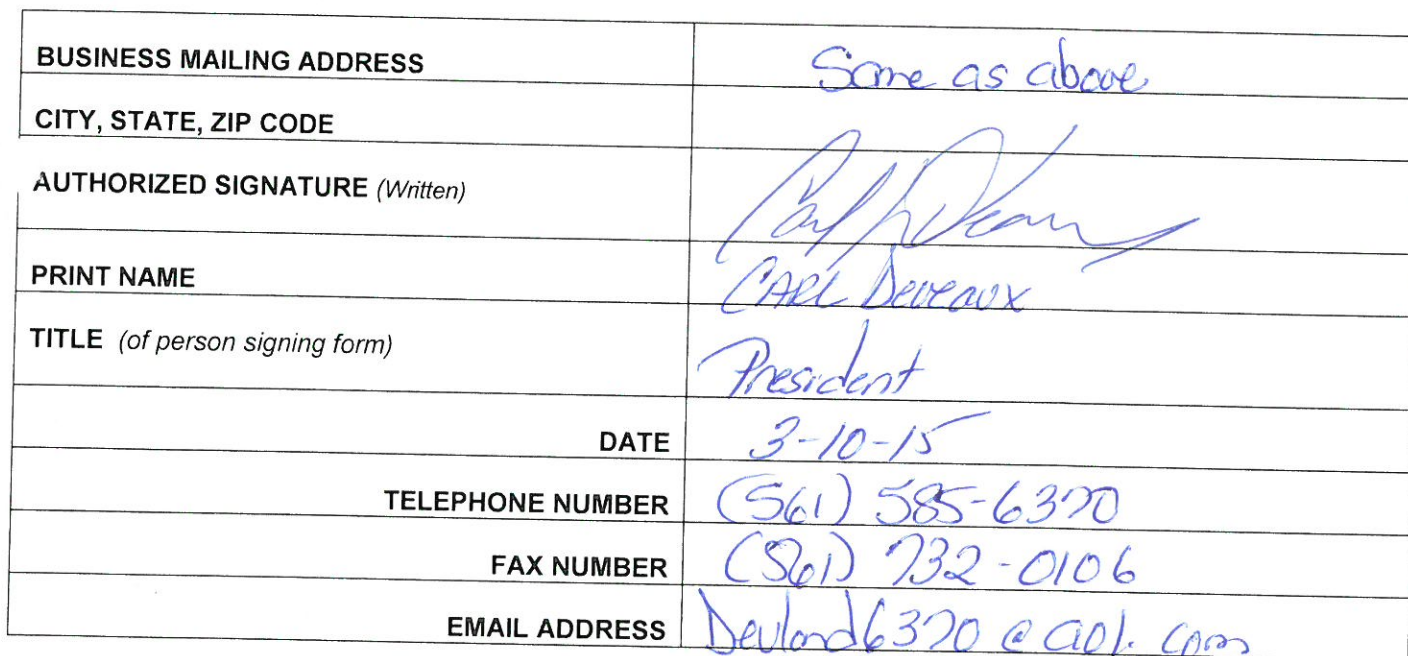 BUSINESS MAILING ADDRESS Same as above
CITY, STATE, ZIP CODE
AUTHORIZED SIGNATURE (Written)
PRINT NAME CARL Deveaux
TITLE (of person signing form) President
DATE 3-10-15
TELEPHONE NUMBER (561) 585-6370
FAX NUMBER (561) 732-0106
EMAIL ADDRESS Devland6370@aol.com